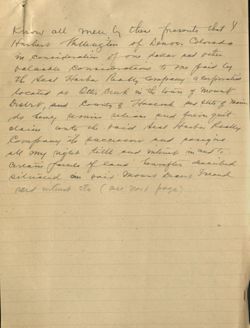 Know all men by these presents that I
of Denver, Colorado
in consideration of one dollar and other
valuable considerations to me paid by
the Seal Harbor Realty Company a corporation
located at Otter Creek in the town of Mount
Desert, and County of Hancock and State of Maine
do hereby remise release and forever quit
claim unto the said Seal Harbor Realty
Company its successors and assigns
all my right title and interest in and to
certain parcels of land hereinafter described
situated on said Mount Desert Island
and